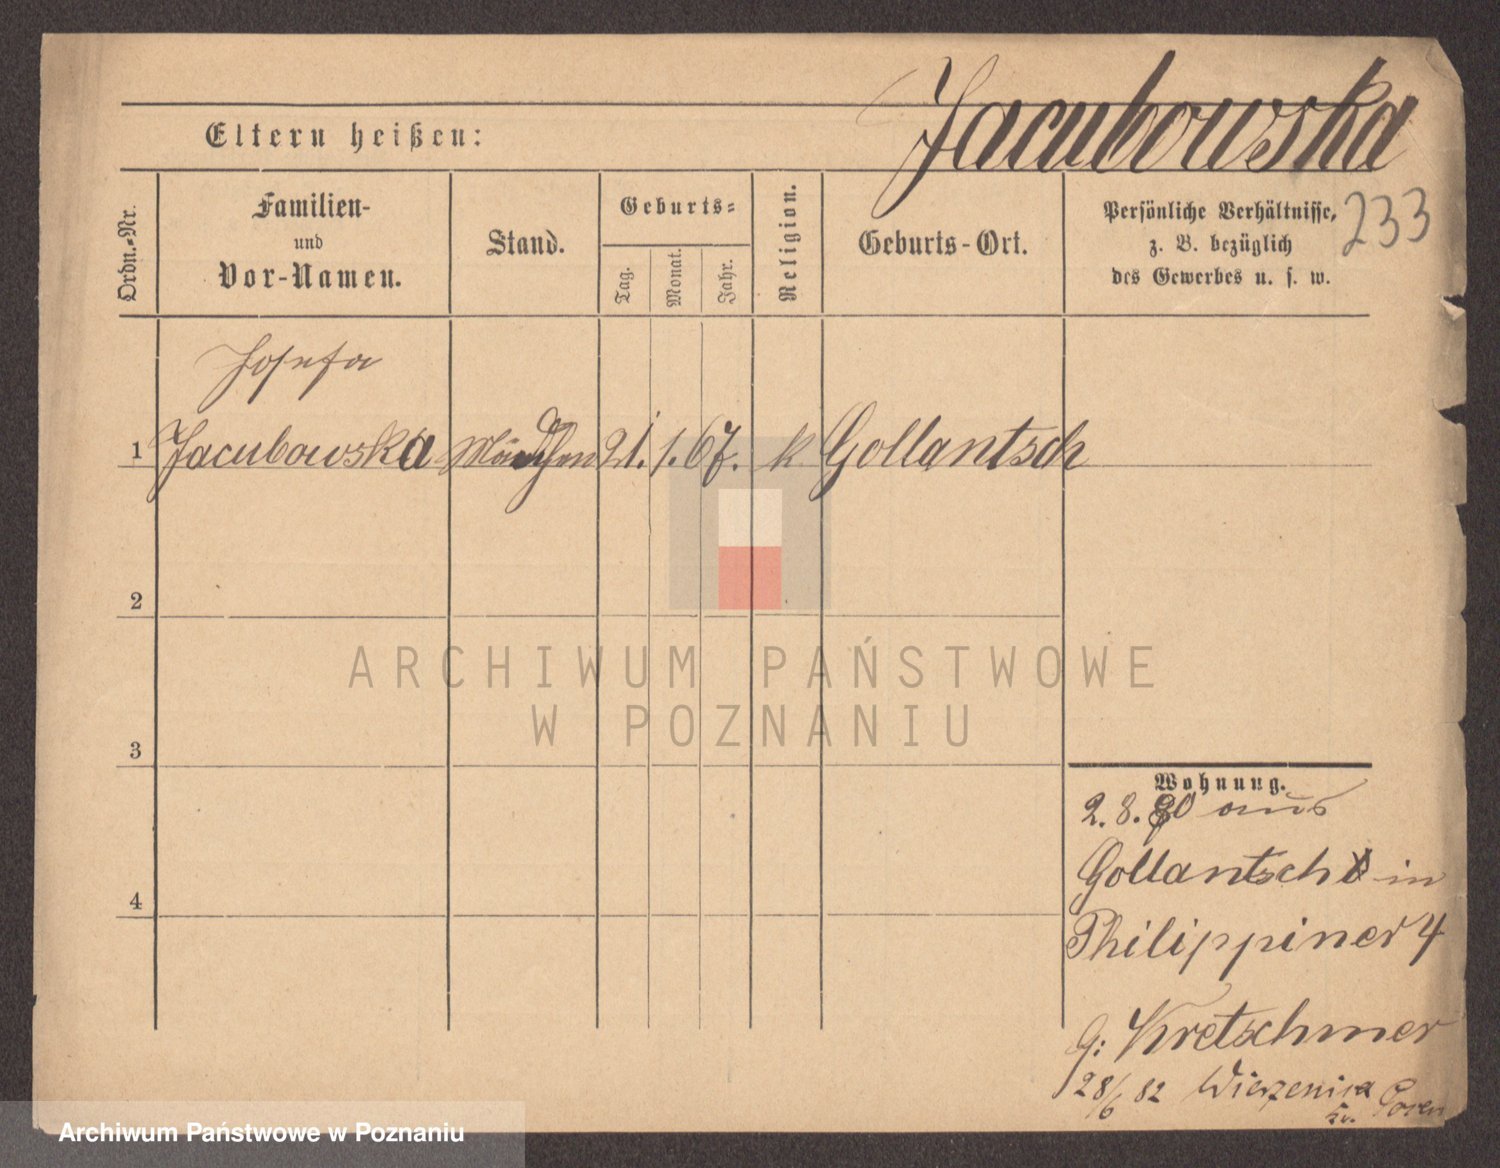 Jacubowska
Eltern heißen:
233
Ordn.-Nr.
Familien-
und
Vor-Namen.
Stand.
Geburts-
Tag.
Monat.
Jahr.
Religion.
Geburts-Ort.
Persönliche Verhältnisse,
z. B. bezüglich
des Gewerbes u. s. w.
Josefa
1 Jacubowska Mädchen 21. 1. 67. k Gollantsch
2
3
4
ARCHIWUM PAŃSTWOWE
W POZNANIU
Wohnung.
2. 8. 80 aus
Gollantsch in
Philippiner 4
G: Kretschmer
28/6 82 Wierzenica
Kr. Posen
Archiwum Państwowe w Poznaniu